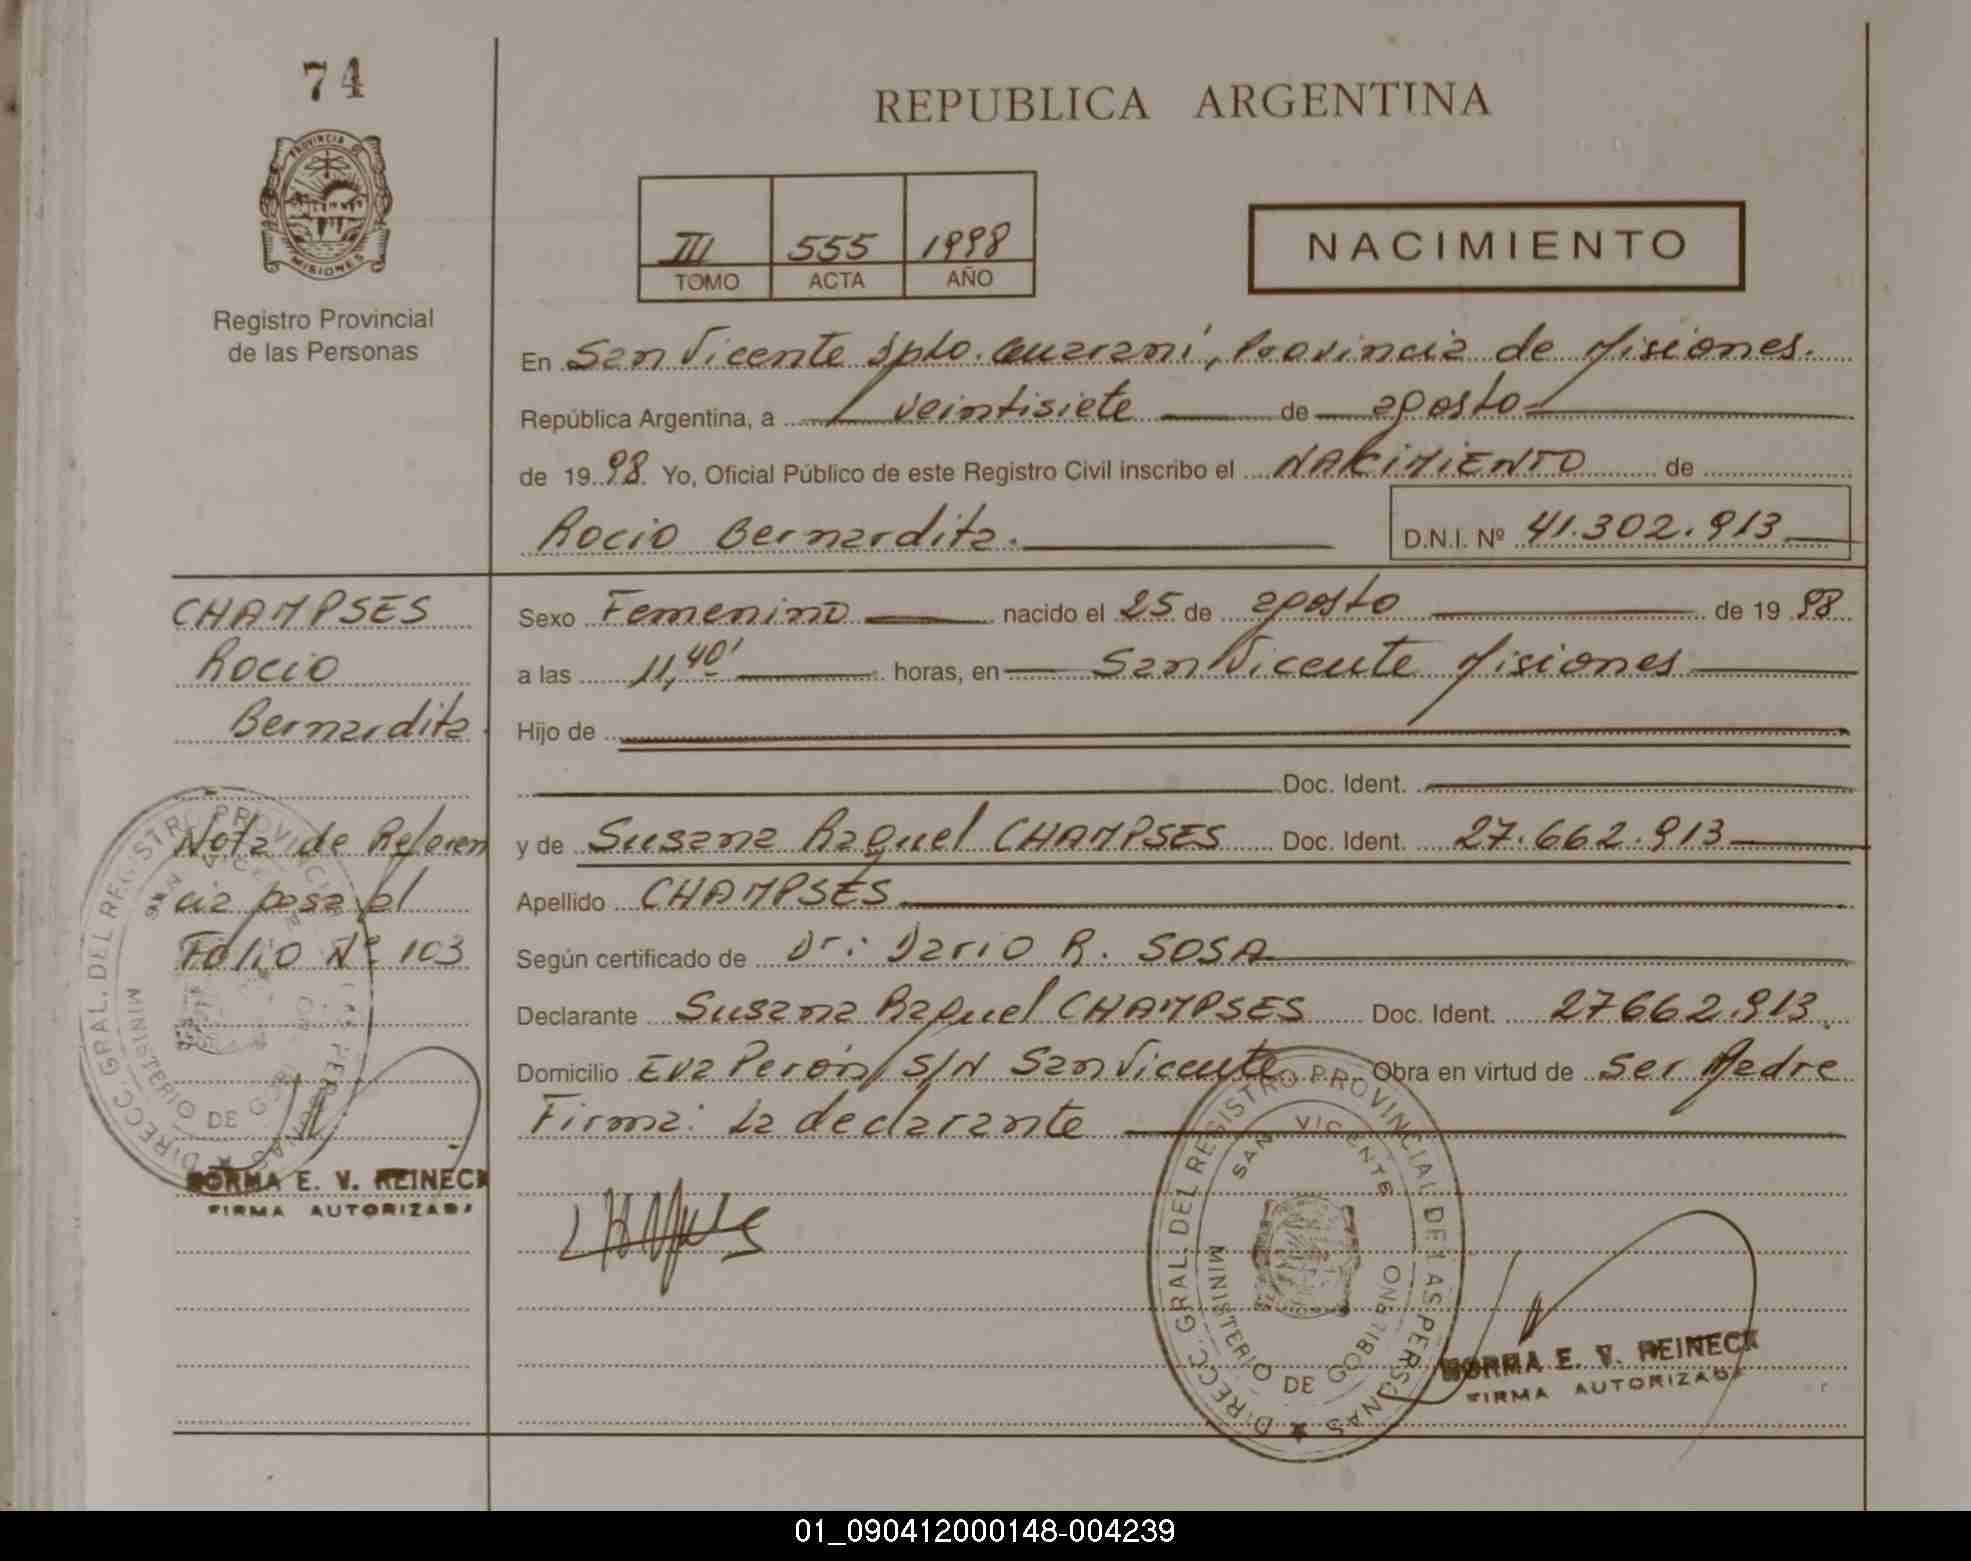 74
REPUBLICA ARGENTINA
PROVINCIA DE
MISIONES
Registro Provincial
de las Personas
III 555 1998
TOMO ACTA AÑO
NACIMIENTO
En San Vicente Dpto. Guaraní, Provincia de Misiones.
República Argentina, a veintisiete de agosto
de 1998 Yo, Oficial Público de este Registro Civil inscribo el NACIMIENTO de
Rocio Bernardita. D.N.I. Nº 41.302.913
CHAMPSES
Rocio
Bernardita
Sexo Femenino nacido el 25 de agosto de 1998
a las 11,40' horas, en San Vicente Misiones
Hijo de
Doc. Ident.
y de Susana Raquel CHAMPSES Doc. Ident. 27.662.913
Apellido CHAMPSES
Según certificado de Dr: Dario R. SOSA
Declarante Susana Raquel CHAMPSES Doc. Ident. 27662.913.
Domicilio Eva Perón S/N San Vicente Obra en virtud de ser Madre
Firma: La declarante
Nota de Referen
cia pasa al
Folio Nº 103
DIRECC. GRAL. DEL REGISTRO PROVINCIAL DE LAS PERSONAS
SAN VICENTE
MINISTERIO DE GOBIERNO
NORMA E. V. REINECK
FIRMA AUTORIZADA
DIRECC. GRAL. DEL REGISTRO PROVINCIAL DE LAS PERSONAS
SAN VICENTE
MINISTERIO DE GOBIERNO
NORMA E. V. REINECK
FIRMA AUTORIZADA
01_090412000148-004239